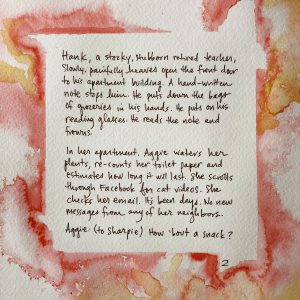 Hank, a stocky, stubborn retired teacher,
slowly, painfully heaves open the front door
to his apartment building. A hand-written
note stops him. He puts down the bags
of groceries in his hands. He puts on his
reading glasses. He reads the note and
frowns.
In her apartment, Aggie waters her
plants, re-counts her toilet paper and
estimates how long it will last. She scrolls
through Facebook for cat videos. She
checks her email. Its been days. No new
messages from any of her neighbors.
Aggie: (to Sharpie) How 'bout a snack?
2